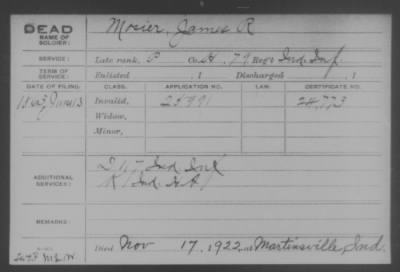 DEAD
NAME OF SOLDIER:
Mosier, James R
SERVICE:
Late rank, P Co. H, 79 Reg't Ind. Inf.
TERM OF SERVICE:
Enlisted , 1 Discharged , 1
DATE OF FILING: CLASS. APPLICATION NO. LAW. CERTIFICATE NO.
1863 June 13 Invalid, 25991 24,773
Widow,
Minor,
ADDITIONAL SERVICES:
D 17 Ind Inf
K 1 Ind. H.A.
REMARKS:
Died Nov 17, 1922, at Martinsville, Ind.